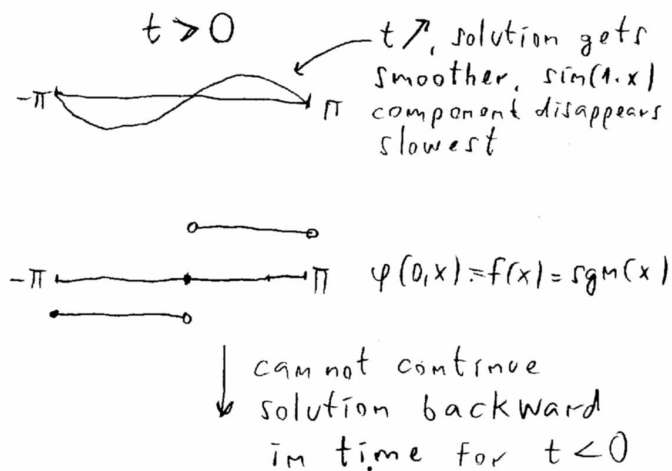 t > 0
t ↗, solution gets
smoother, sin(1·x)
component disappears
slowest
-π
π
-π
π
φ(0,x) = f(x) = sgn(x)
cannot continue
solution backward
in time for t < 0